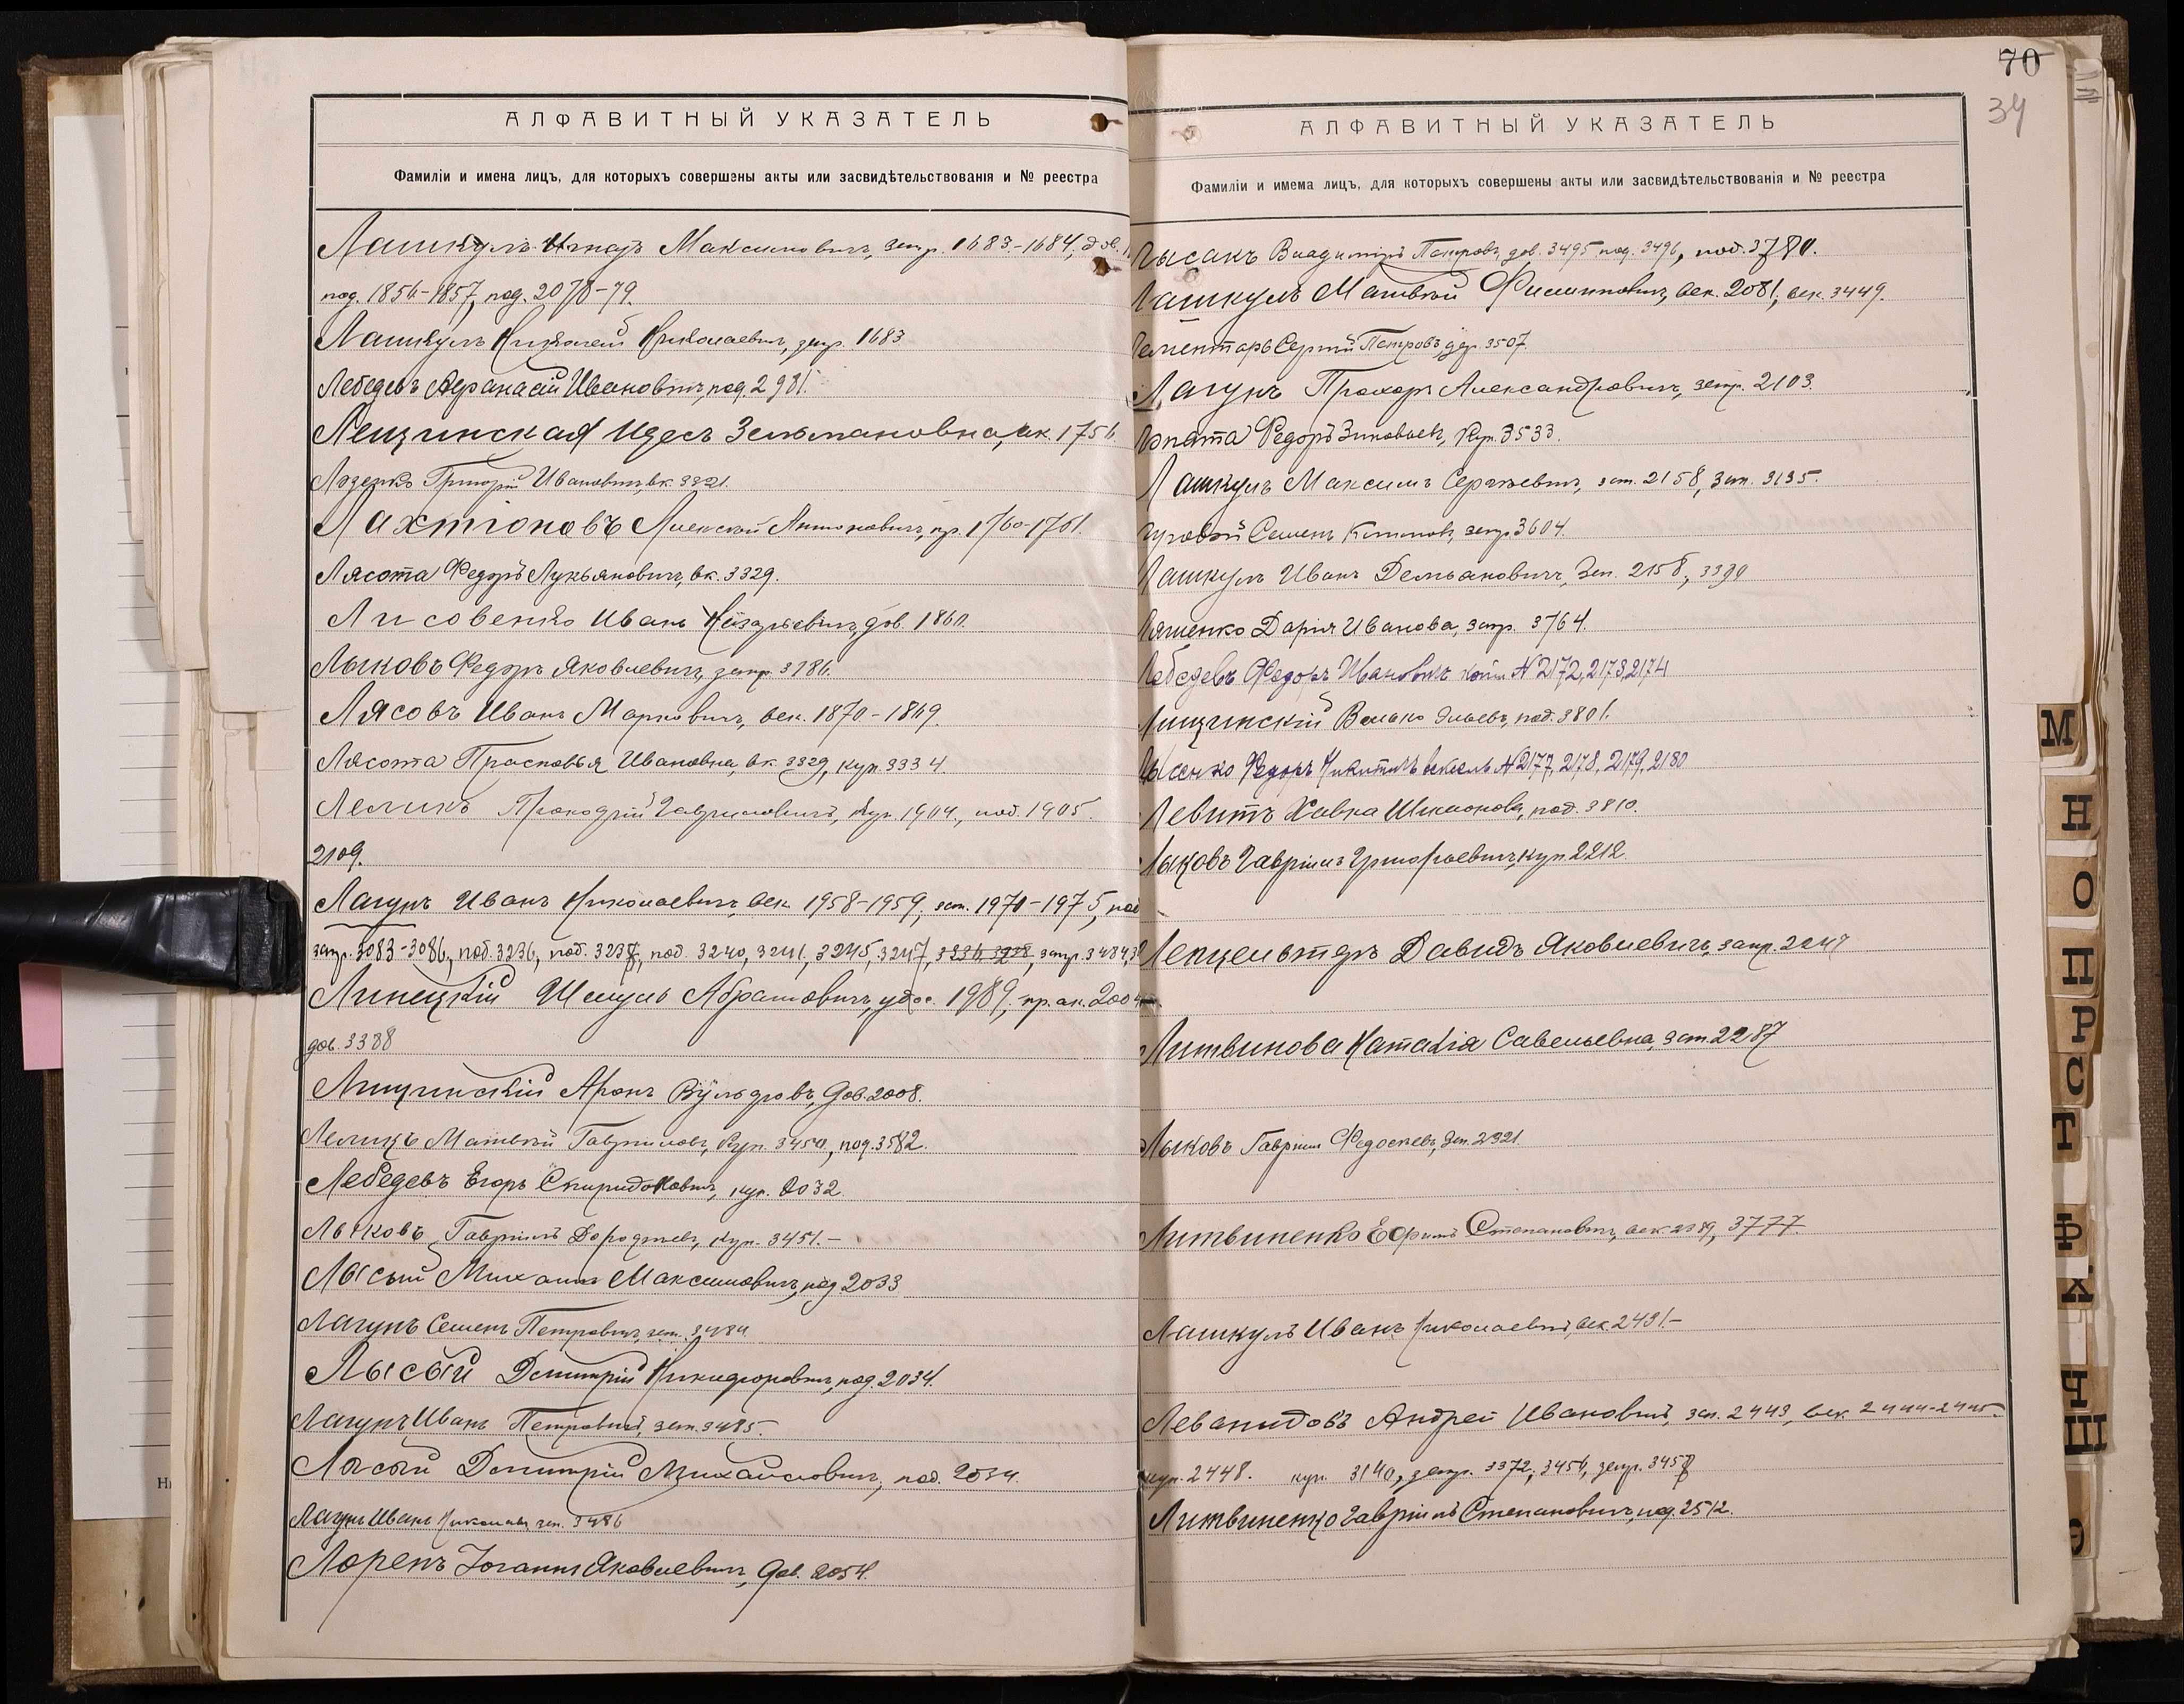 АЛФАВИТНЫЙ УКАЗАТЕЛЬ
Фамиліи и имена лицъ, для которыхъ совершены акты или засвидѣтельствованія и № реестра
Лашкулъ Игнатъ Максимовичъ, запр. 1683-1684, дов.
под. 1856-1857, под. 2078-79.
Лашкулъ Николай Николаевич, запр. 1683
Лебедевъ Афанасій Ивановичъ, под. 2981.
Лещинская Идесъ Зельмановна, ак. 1756
Григорій Ивановичъ, вк. 3321.
Лахтіоновъ Алексѣй Антоновичъ, пр. 1760-1761.
Лясота Федоръ Лукьяновичъ, вк. 3329.
Лисовенко Иванъ дов. 1860.
Лыковъ Федоръ Яковлевичъ, запр. 3186.
Лясовъ Иванъ Марковичъ, век. 1870-1869.
Лясота Прасковья Ивановна, вк. 3329, куп. 3334.
Леликъ Прокофій Гавриловичъ, куп. 1904., под. 1905.
2109.
Лагунъ Иванъ Николаевичъ, век. 1958-1959, зап. 1970-1975, под
запр. 3083-3086, под. 3236, под. 3238, под. 3240, 3241, 3245, 3247, 3236, 3238, запр. 3484,
Линецкій Шмуль Абрамовичъ, удос. 1989, пр. ак. 2004
дов. 3388
Лищинскій Аронъ Вульфовъ, дов. 2008.
Леликъ Матвѣй Гавриловъ, куп. 3450, под. 3582.
Лебедевъ Егоръ Спиридоновичъ, куп. 2032
Лыковъ Гавріилъ Дорофѣевъ, куп. 3451.-
Лысый Михаилъ Максимовичъ, под 2033
Лагунъ Семенъ Петровичъ, зап. 3484
Лысый Дмитрій Никифоровичъ, под. 2034.
Лагунъ Иванъ Петровичъ, зап. 3485.
Лысый Дмитрій Михайловичъ, под. 2034.
Лагунъ Иванъ Николаевъ, зап. 3486
Лоренъ Іоганнъ Яковлевичъ, дов. 2054.
70
34
АЛФАВИТНЫЙ УКАЗАТЕЛЬ
Фамиліи и имема лицъ, для которыхъ совершены акты или засвидѣтельствованія и № реестра
Лысакъ Владиміръ Петровъ, дов. 3495 под. 3496, под. 3780.
Лашкулъ Матвѣй Филипповичъ, век. 2081, век. 3449.
Лементарь Сергѣй Петровъ, 3507.
Лагунъ Прохоръ Александровичъ, запр. 2103.
Лопата Федоръ Зиновьевъ, куп. 3533.
Лашкулъ Максимъ Сергѣевичъ, зап. 2158, зап. 3135.
Луговой Семенъ запр. 3604.
Лашкулъ Иванъ Демьяновичъ, зап. 2158, 3390
Ляшенко Дарія Иванова, запр. 3764.
Лебедевъ Федоръ Ивановичъ копія № 2172, 2173, 2174
Лищинскій Волько Эльевъ, под. 3801.
Лысенко Федоръ Никитичъ вексель № 2177, 2178, 2179, 2180
Левитъ Хавка Шимонова, под. 3810.
Лыковъ Гавріилъ Григорьевичъ, куп. 2212.
Лепцельтеръ Давидъ Яковлевичъ, запр. 2247
Литвинова Наталія Савельевна, зап. 2287
Лыковъ Гавріилъ Федосѣевъ, зап. 2321.
Литвиненко Ефимъ Степановичъ, век. 2389, 3777.
Лашкулъ Иванъ Николаевичъ, век. 2431.-
Леванидовъ Андрей Ивановичъ, зап. 2443, век. 2444-2445.
куп. 2448. куп. 3140, запр. 3372, 3456, запр. 3458
Литвиненко Гавріилъ Степановичъ, под. 2512.
М
Н
О
П
Р
С
Т
Ф
Х
Ч
Ш
Э